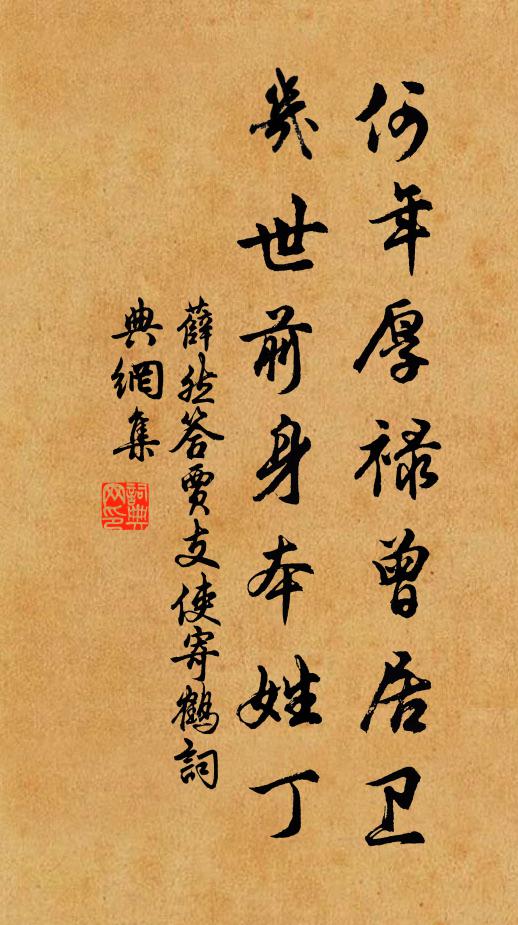 何年厚禄曾居卫
几世前身本姓丁
薛能答贾支使寄鹤詞
典網集
詞典网印